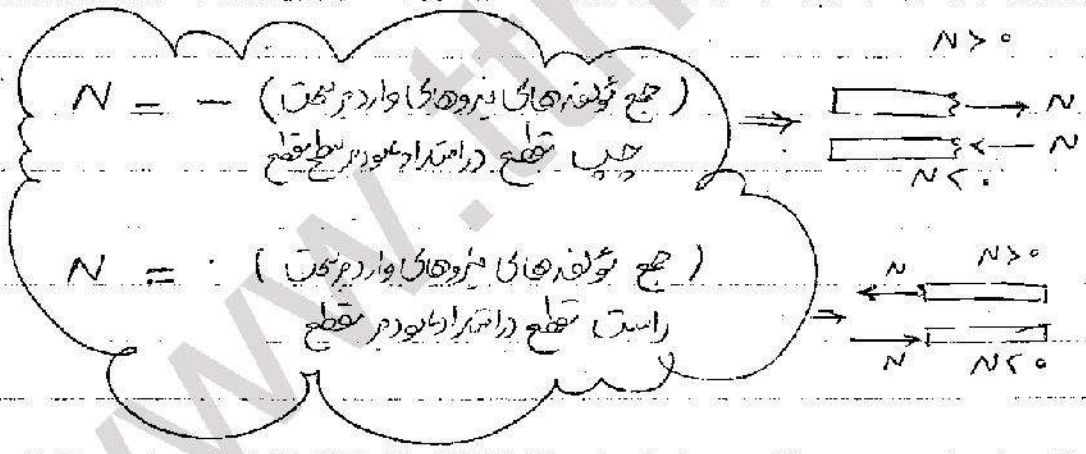 N > 0
N = - (جمع مؤلفه های نیروهای وارد بر سمت) ⇒ → N
چپ مقطع در امتداد عمود بر سطح مقطع ← N
N < 0
N = (جمع مؤلفه های نیروهای وارد بر سمت) N N > 0
راست مقطع در امتداد عمود بر مقطع ⇒ N N < 0
www.